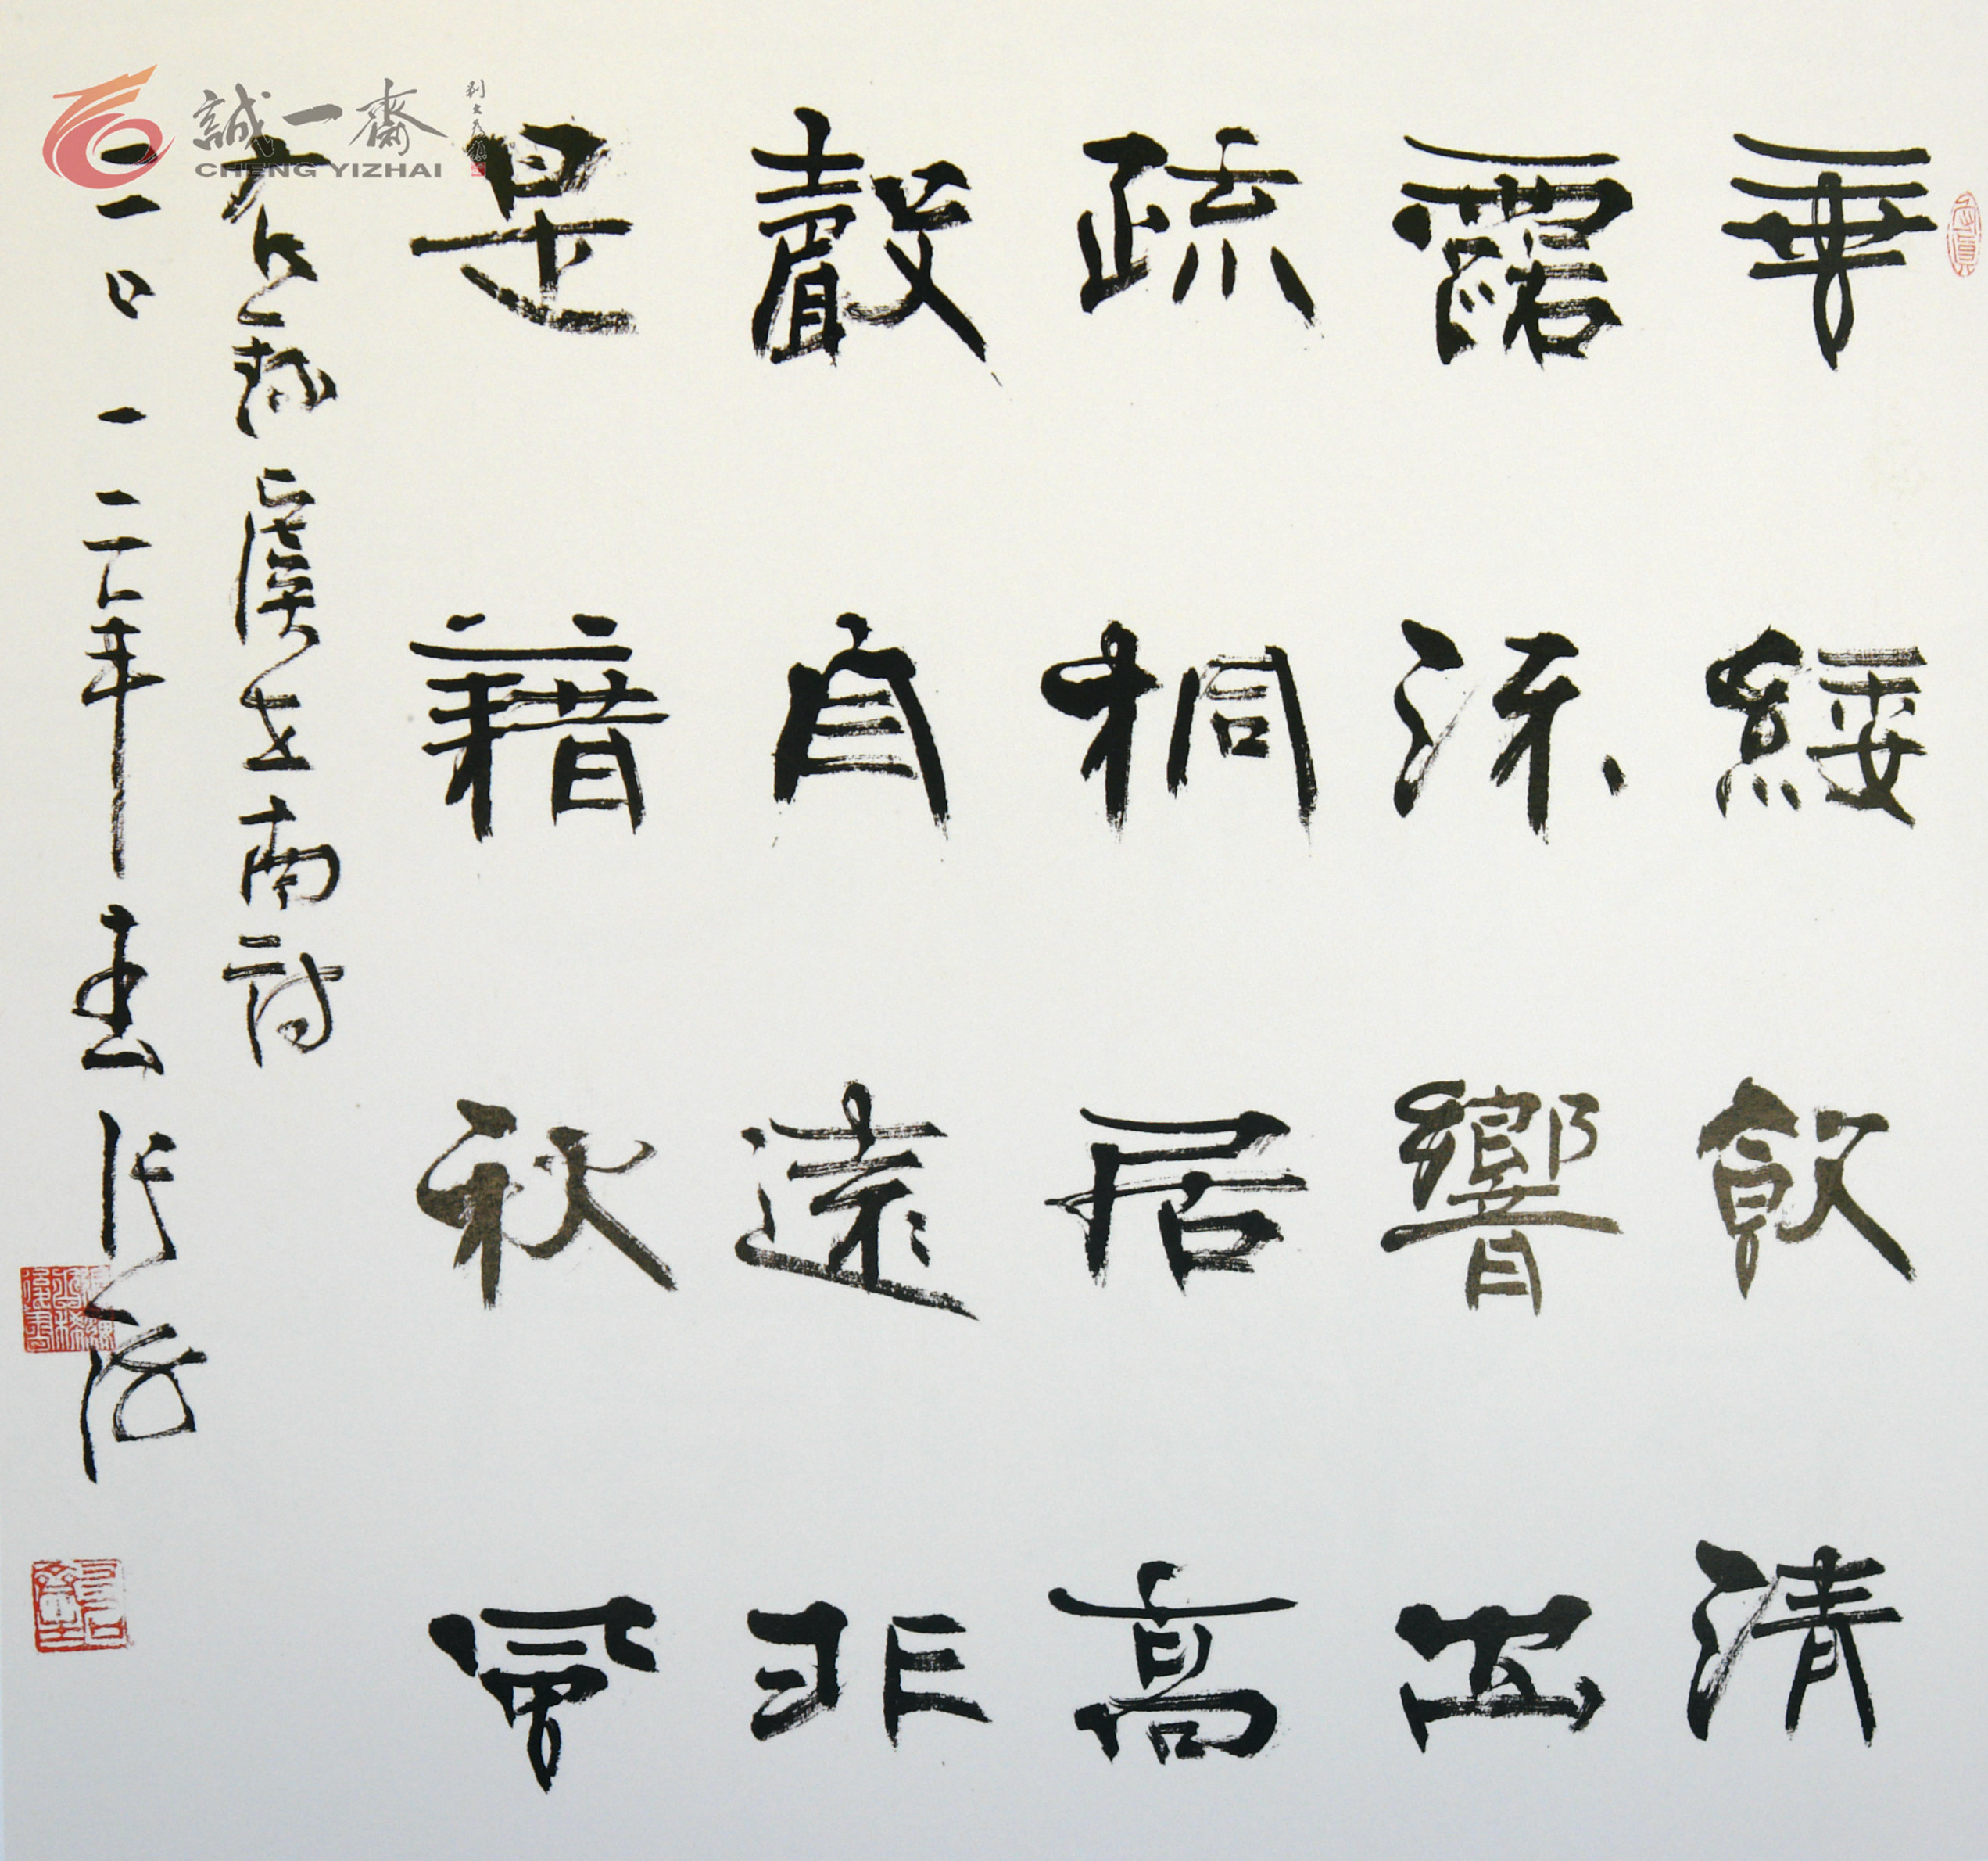 垂緌飲清
露流響出
疏桐居高
聲自遠非
是藉秋風
右錄虞世南詩
二〇一二年
誠一齋
CHENG YIZHAI